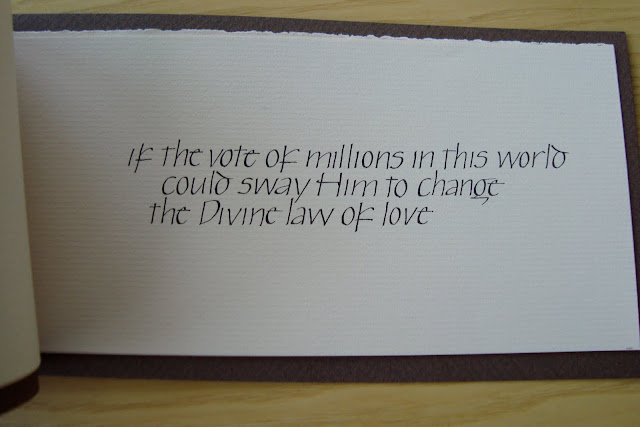 if the vote of millions in this world
could sway Him to change
the Divine law of love